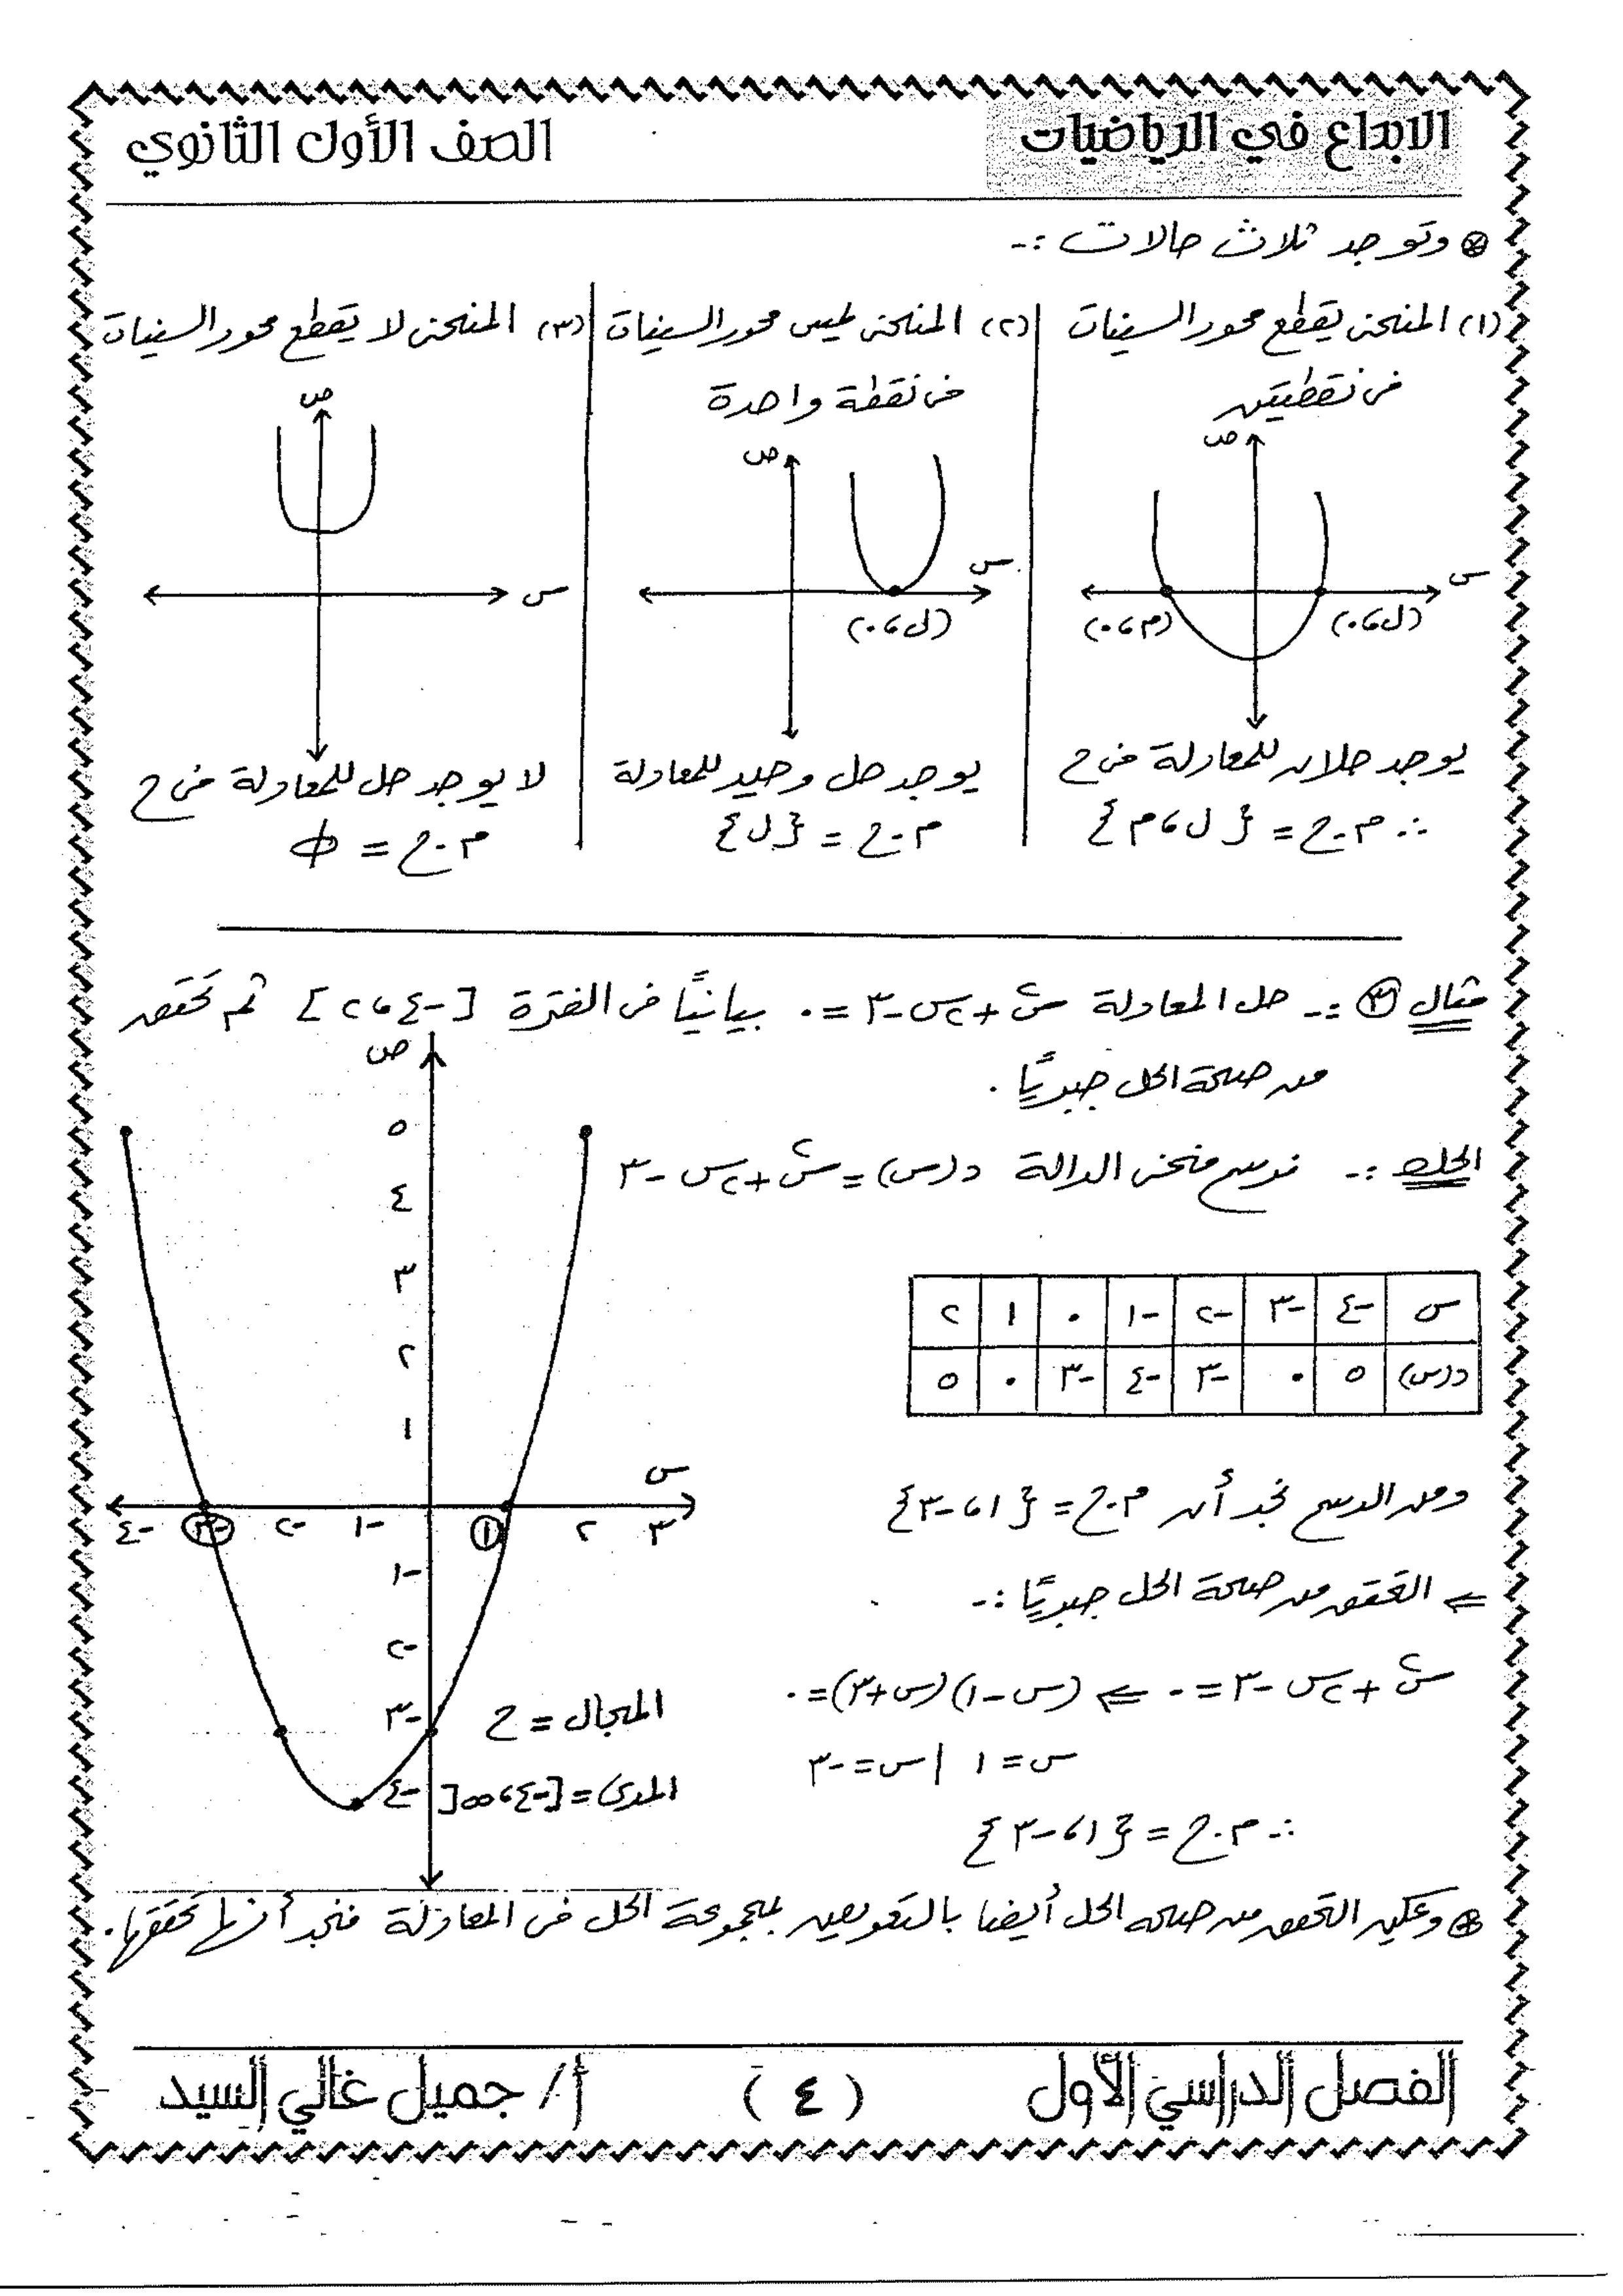 الابداع في الرياضيات
الصف الأول الثانوي
⊗ وتوجد ثلاث حالات :-
(١) المنحنى يقطع محور السينات
فى نقطتين
ص
س
(ل ، ٠)
(م ، ٠)
يوجد حلان للمعادلة فى ح
∴ م.ح = {ل ، م}
(٢) المنحنى يمس محور السينات
فى نقطة واحدة
ص
س
(ل ، ٠)
يوجد حل وحيد للمعادلة
م.ح = {ل}
(٣) المنحنى لا يقطع محور السينات
ص
س
لا يوجد حل للمعادلة فى ح
م.ح = φ
مثال ٣ :- حل المعادلة س² + ٢س - ٣ = ٠ بيانيًا فى الفترة [-٤ ، ٢] ثم تحقق
من صحة الحل جبريًا .
الحل :- نرسم منحنى الدالة د(س) = س² + ٢س - ٣
س -٤ -٣ -٢ -١ ٠ ١ ٢
د(س) ٥ ٠ -٣ -٤ -٣ ٠ ٥
ومن الرسم نجد أن م.ح = {١ ، -٣}
⇐ التحقق من صحة الحل جبريًا :-
س² + ٢س - ٣ = ٠ ⇐ (س - ١)(س + ٣) = ٠
س = ١ | س = -٣
∴ م.ح = {١ ، -٣}
ص
٥
٤
٣
٢
١
س
-٤ -٣ -٢ -١ ١ ٢ ٣
-١
-٢
-٣
-٤
المجال = ح
المدى = [-٤ ، ∞[
⊗ ويمكن التحقق من صحة الحل أيضا بالتعويض بمجموعة الحل فى المعادلة فنجد أنها تحققها .
الفصل الدراسي الأول
( ٤ )
أ / جميل غالي السيد